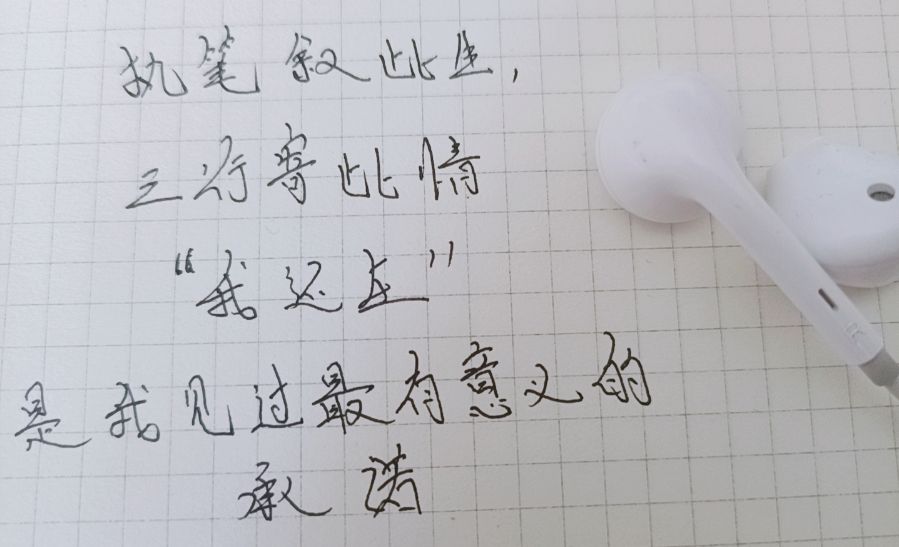 执笔叙此生，
三行寄此情
“我还在”
是我见过最有意义的
承诺